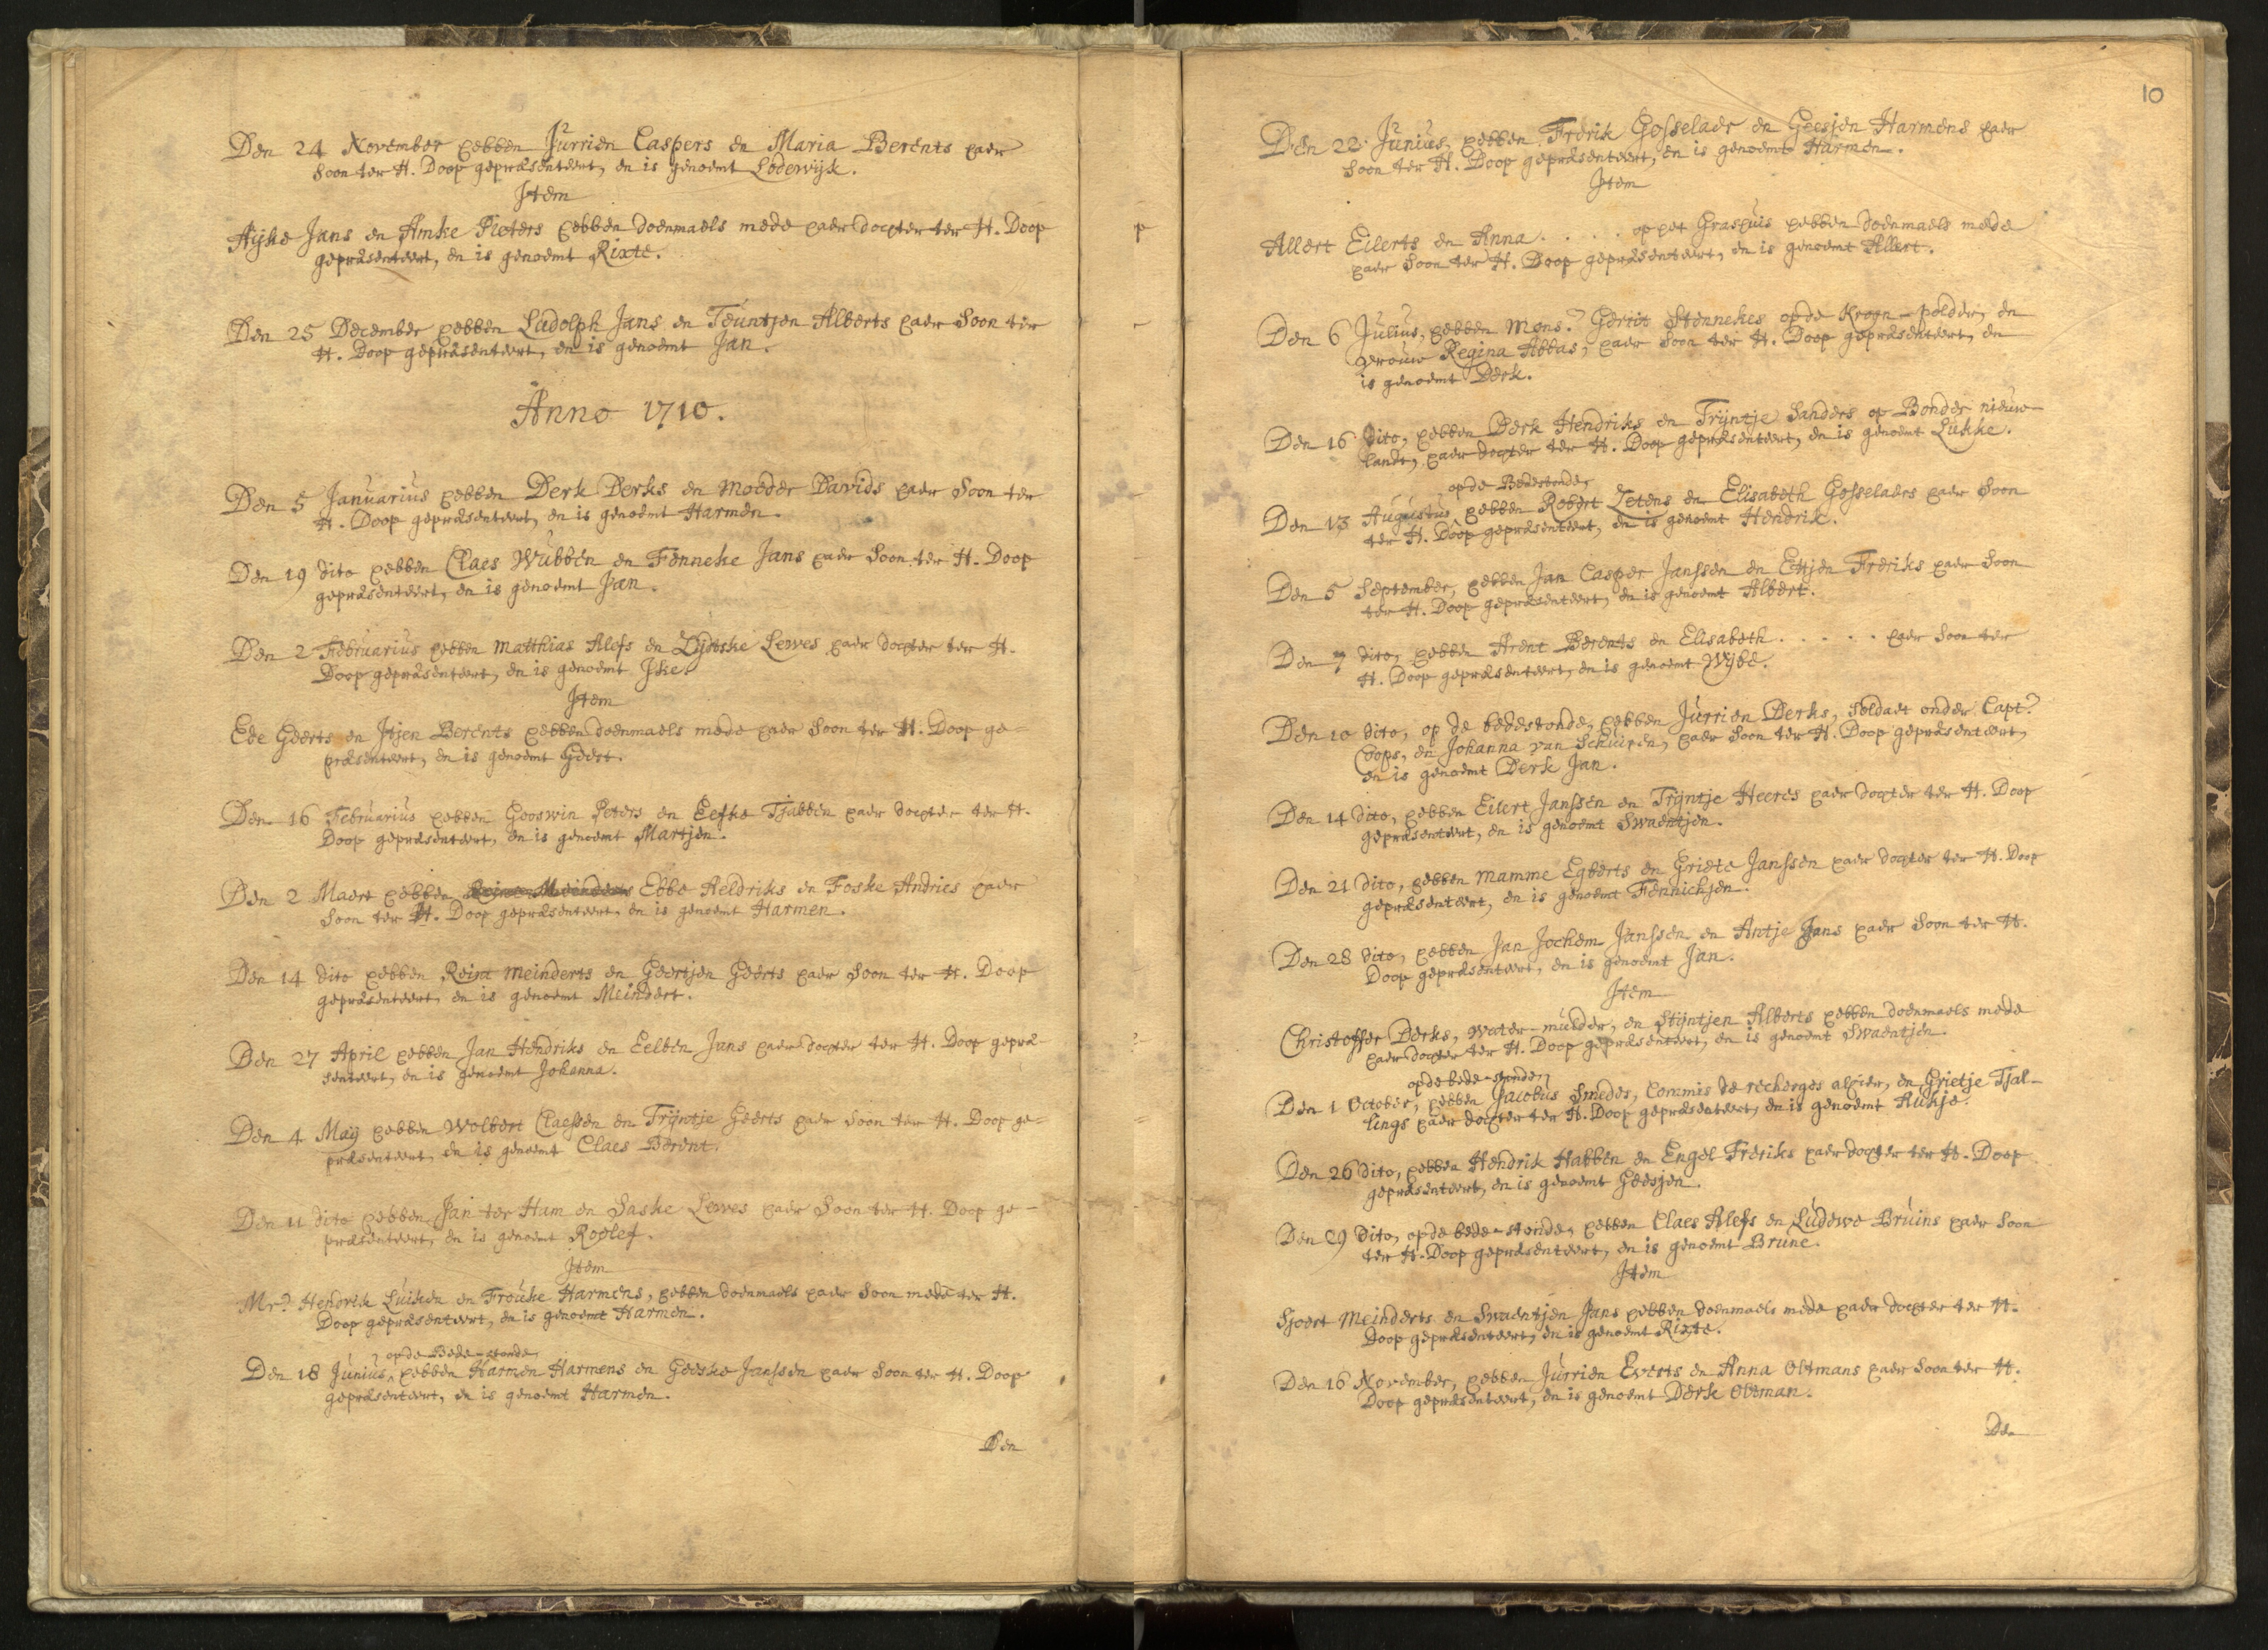 Den 24 November hebben Jurrien Caspers en Maria Berents haer
soon ter H. Doop gepræsenteert, en is genoemt Lodewijk.
Item
Aijke Jans en Amke Pieters hebben doenmaels mede haer dochter ter H. Doop
gepræsenteert, en is genoemt Rixte.
Den 25 December hebben Ludolph Jans en Teuntjen Alberts haer soon ter
H. Doop gepræsenteert, en is genoemt Jan.
Anno 1710.
Den 5 Januarius hebben Derk Derks en Moeder Davids haer soon ter
H. Doop gepræsenteert, en is genoemt Harmen.
Den 19 dito hebben Claes Wubben en Fenneke Jans haer soon ter H. Doop
gepræsenteert, en is genoemt Jan.
Den 2 Februarius hebben Matthias Alefs en Zijtske Lewes haer dochter ter H.
Doop gepræsenteert, en is genoemt Jke.
Item
Ede Geerts en Jtjen Berents hebben doenmaels mede haer soon ter H. Doop ge-
præsenteert, en is genoemt Geert.
Den 16 Februarius hebben Gooswin Peters en Eefke Tjabben haer dochter ter H.
Doop gepræsenteert, en is genoemt Martjen.
Den 2 Maert hebben Ebbe Heldriks en Foske Andries haer
soon ter H. Doop gepræsenteert, en is genoemt Harmen.
Den 14 dito hebben Reint Meinderts en Geertjen Geerts haer soon ter H. Doop
gepræsenteert, en is genoemt Meindert.
Den 27 April hebben Jan Hendriks en Eelben Jans haer dochter ter H. Doop gepræ-
senteert, en is genoemt Johanna.
Den 4 Maij hebben Wolbert Claessen en Trijntje Geerts haer soon ter H. Doop ge-
præsenteert, en is genoemt Claes Berent.
Den 11 dito hebben Jan ter Ham en Saske Lewes haer soon ter H. Doop ge-
præsenteert, en is genoemt Roelef.
Item
Mr. Hendrik Luiken en Frouke Harmens, hebben doenmaels haer soon mede ter H.
Doop gepræsenteert, en is genoemt Harmen.
op de Bede-stonde
Den 18 Junius, hebben Harmen Harmens en Geeske Janssen haer soon ter H. Doop
gepræsenteert, en is genoemt Harmen.
Den
10
Den 22 Junius, hebben Frerik Gosselaer en Geesjen Harmens haer
soon ter H. Doop gepræsenteert, en is genoemt Harmen.
Item
Allert Eilerts en Anna . . . . op het Grashuis hebben doenmaels mede
haer soon ter H. Doop gepræsenteert, en is genoemt Allert.
Den 6 Julius, hebben Mons.r Gerrit Stennekes op de Kroon-polder, en
vrouw Regina Abbas, haer soon ter H. Doop gepræsenteert, en
is genoemt Derk.
Den 16 dito, hebben Derk Hendriks en Trijntje Sanders op Bonder nieuw-
landt, haer dochter ter H. Doop gepræsenteert, en is genoemt Lukke.
op de Bedestonde
Den 13 Augustus hebben Robert Zetens en Elisabeth Gosselaers haer soon
ter H. Doop gepræsenteert, en is genoemt Hendrik.
Den 5 September, hebben Jan Casper Janssen en Ettjen Freriks haer soon
ter H. Doop gepræsenteert, en is genoemt Albert.
Den 7 dito, hebben Arent Berents en Elisabeth . . . . . haer soon ter
H. Doop gepræsenteert, en is genoemt Wijbe.
Den 10 dito, op de bedestonde, hebben Jurrien Derks, soldaet onder Capt.
Coops, en Johanna van Schuiren, haer soon ter H. Doop gepræsenteert,
en is genoemt Derk Jan.
Den 14 dito, hebben Eilert Janssen en Trijntje Heeres haer dochter ter H. Doop
gepræsenteert, en is genoemt Swaentjen.
Den 21 dito, hebben Mamme Egberts en Griete Janssen haer dochter ter H. Doop
gepræsenteert, en is genoemt Fennichjen.
Den 28 dito, hebben Jan Jochem Janssen en Antje Jans haer soon ter H.
Doop gepræsenteert, en is genoemt Jan.
Item
Christoffer Derks, water-mulder, en Stijntjen Alberts hebben doenmaels mede
haer dochter ter H. Doop gepræsenteert, en is genoemt Swaentjen.
op de bede-stonde
Den 1 October, hebben Jacobus Smedes, Commis de recherges alhier, en Grietje Tjal-
lings haer dochter ter H. Doop gepræsenteert, en is genoemt Aukje.
Den 26 dito, hebben Hendrik Habben en Engel Freriks haer dochter ter H. Doop
gepræsenteert, en is genoemt Geesjen.
Den 29 dito, op de bede-stonde, hebben Claes Alefs en Ludewe Bruins haer soon
ter H. Doop gepræsenteert, en is genoemt Brune.
Item
Sjoert Meinderts en Swaentjen Jans hebben doenmaels mede haer dochter ter H.
Doop gepræsenteert, en is genoemt Rixte.
Den 16 November, hebben Jurrien Everts en Anna Oltmans haer soon ter H.
Doop gepræsenteert, en is genoemt Derk Oltman.
Den